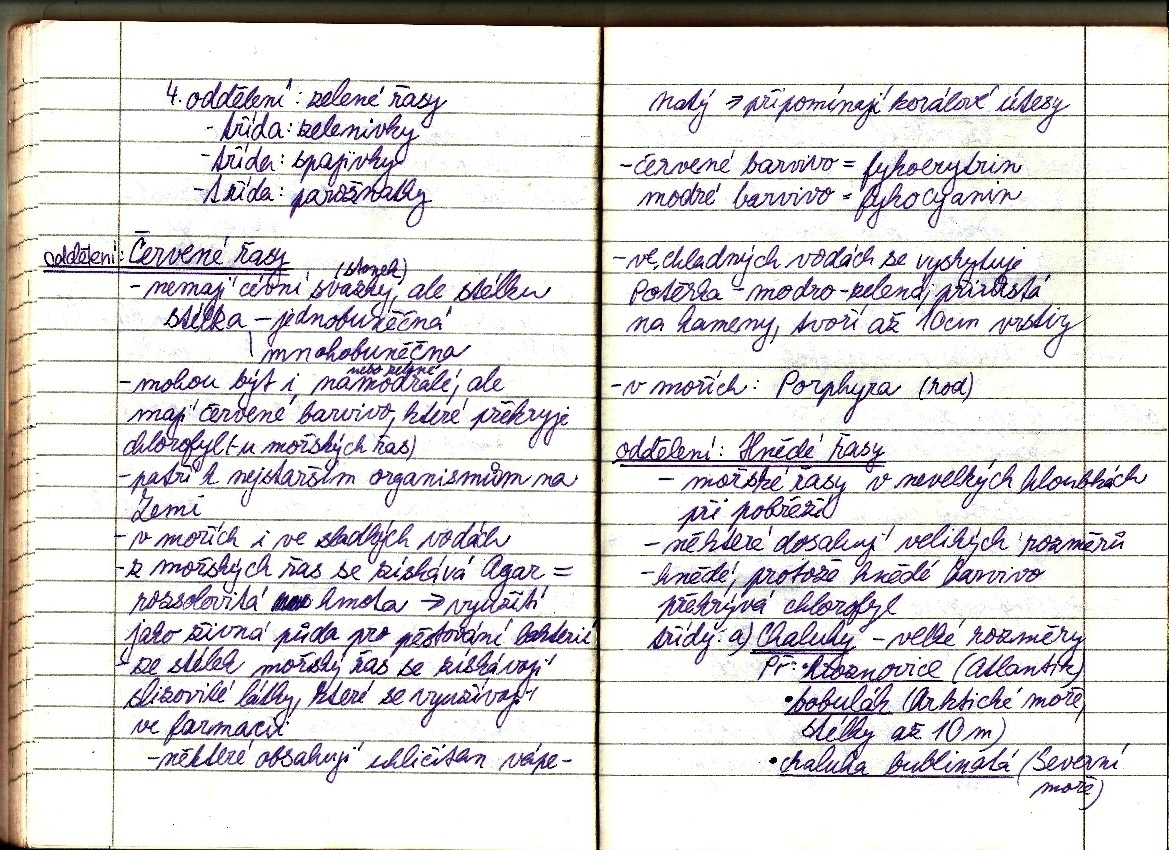 4. oddělení: zelené řasy
- třída: zelenivky
- třída: spajivky
- třída: parožnatky
oddělení: Červené řasy
(stonek)
- nemají cévní svazky, ale stélku
stélka - jednobuněčná
mnohobuněčná
nebo zelené
- mohou být i namodralé, ale
mají červené barvivo, které překryje
chlorofyl (- u mořských řas)
- patří k nejstarším organismům na
Zemi
- v mořích i ve sladkých vodách
- z mořských řas se získává Agar =
rozsolovitá hmota → využití
jako živná půda pro pěstování bakterií
- ze stélek mořský řas se získávají
slizovité látky, které se využívají
ve farmacii
- některé obsahují uhličitan vápe-
natý → připomínají korálové útesy
- červené barvivo = fykoerytrin
modré barvivo = fykocyanin
- ve chladných vodách se vyskytuje
Potěrka - modro-zelená, přirůstá
na kameny, tvoří až 10cm vrstvy
- v mořích: Porphyra (rod)
oddělení: Hnědé řasy
- mořské řasy v nevelkých hloubkách
při pobřeží
- některé dosahují velikých rozměrů
- hnědé, protože hnědé barvivo
překrývá chlorofyl
třídy: a) Chaluhy - velké rozměry
Př: • hroznovice (Atlantik)
• bobulák (Arktické moře,
stélky až 10 m)
• chaluha bublinatá (Severní
moře)